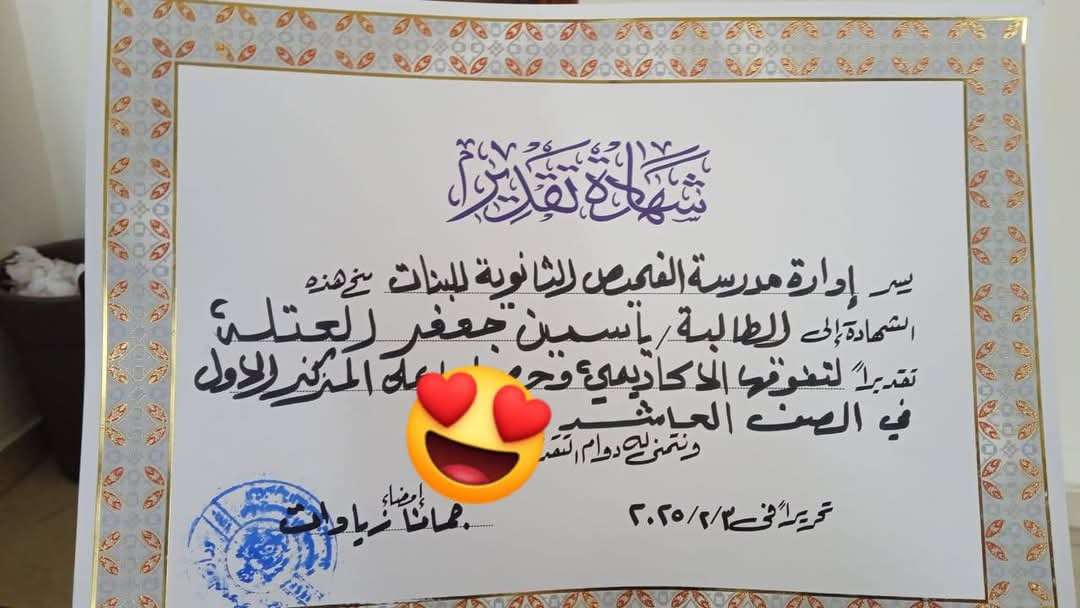 شهادة تقدير
يسر إدارة مدرسة الفحيص الثانوية للبنات منح هذه
الشهادة إلى الطالبة / ياسمين جعفر العتلة
تقديراً لتفوقها الأكاديمي المركز الأول
في الصف العاشر
ونتمنى له دوام
إمضاء
تحريراً في ٢٠٢٥/٢/٣
جمانا زياوات